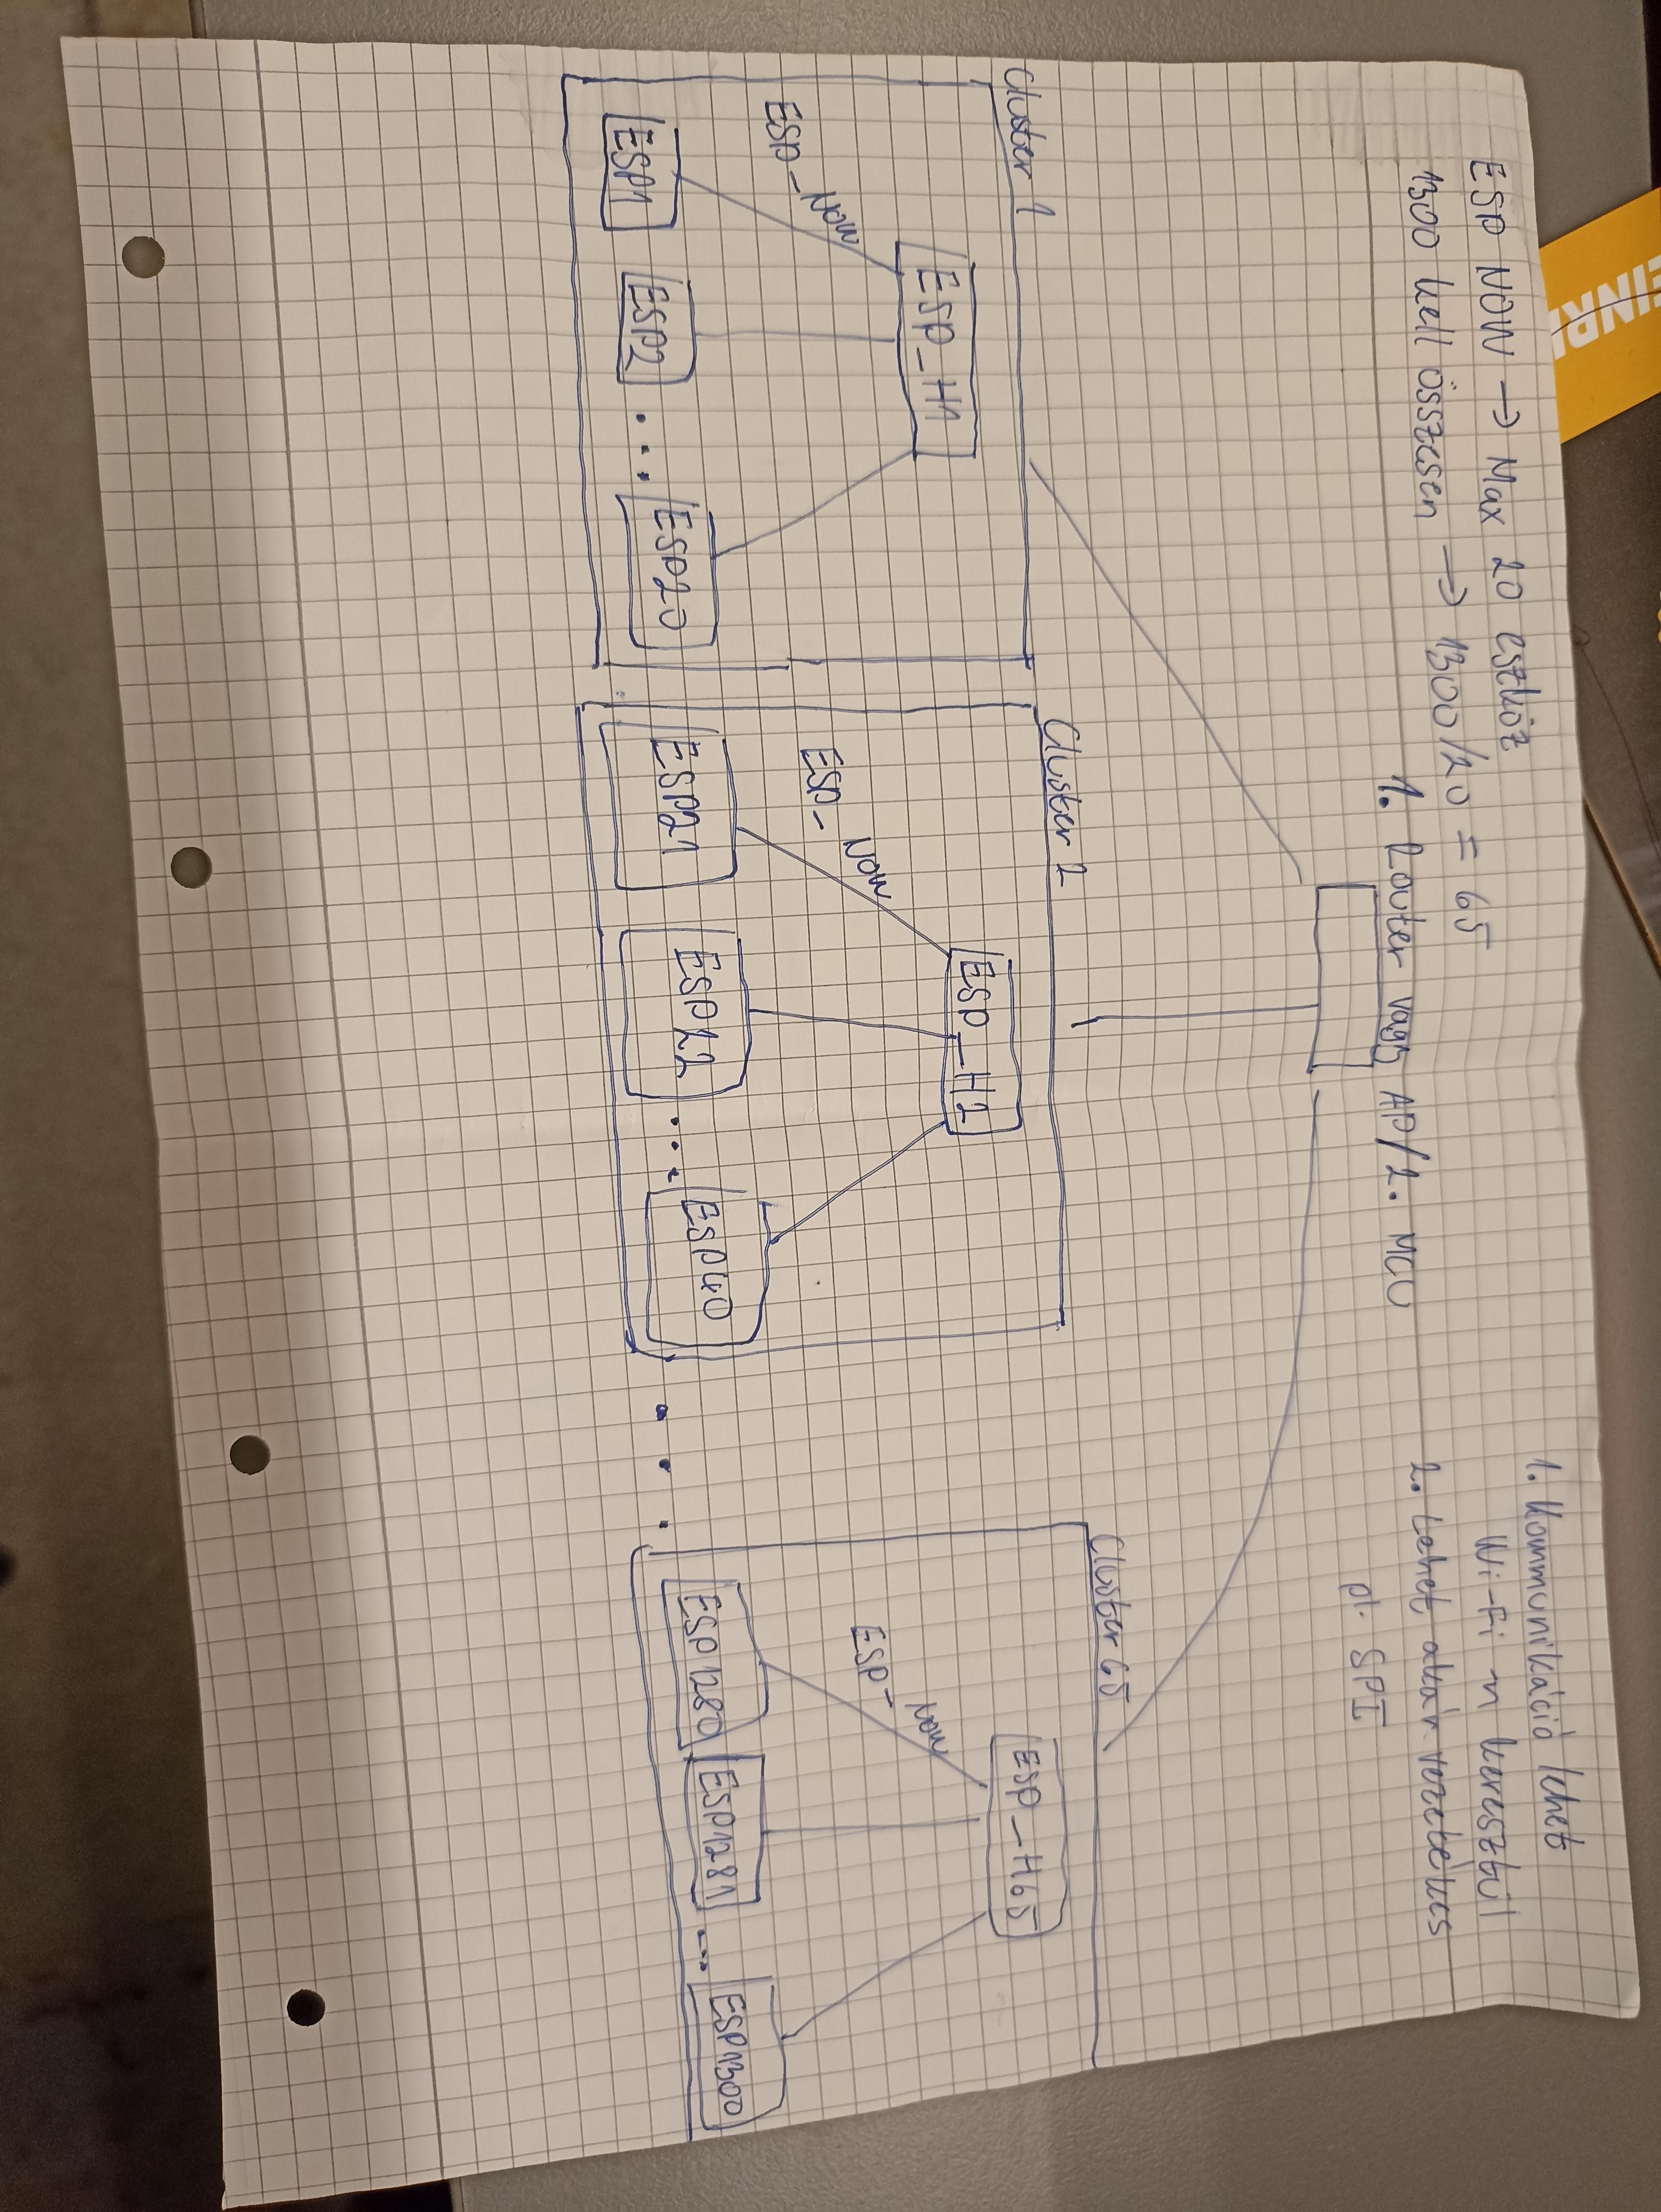 ESP NOW → Max 20 eszköz
1300 kell összesen → 1300/20 = 65
1. Router vagy AP/2. MCU
1. Kommunikáció lehet
Wi-Fi-n keresztül
2. Lehet akár vezetékes
pl. SPI
Cluster 1
ESP_H1
ESP-NOW
ESP1
ESP2
...
ESP20
Cluster 2
ESP_H2
ESP-NOW
ESP21
ESP22
...
ESP40
...
Cluster 65
ESP_H65
ESP-NOW
ESP1280
ESP1281
...
ESP1300